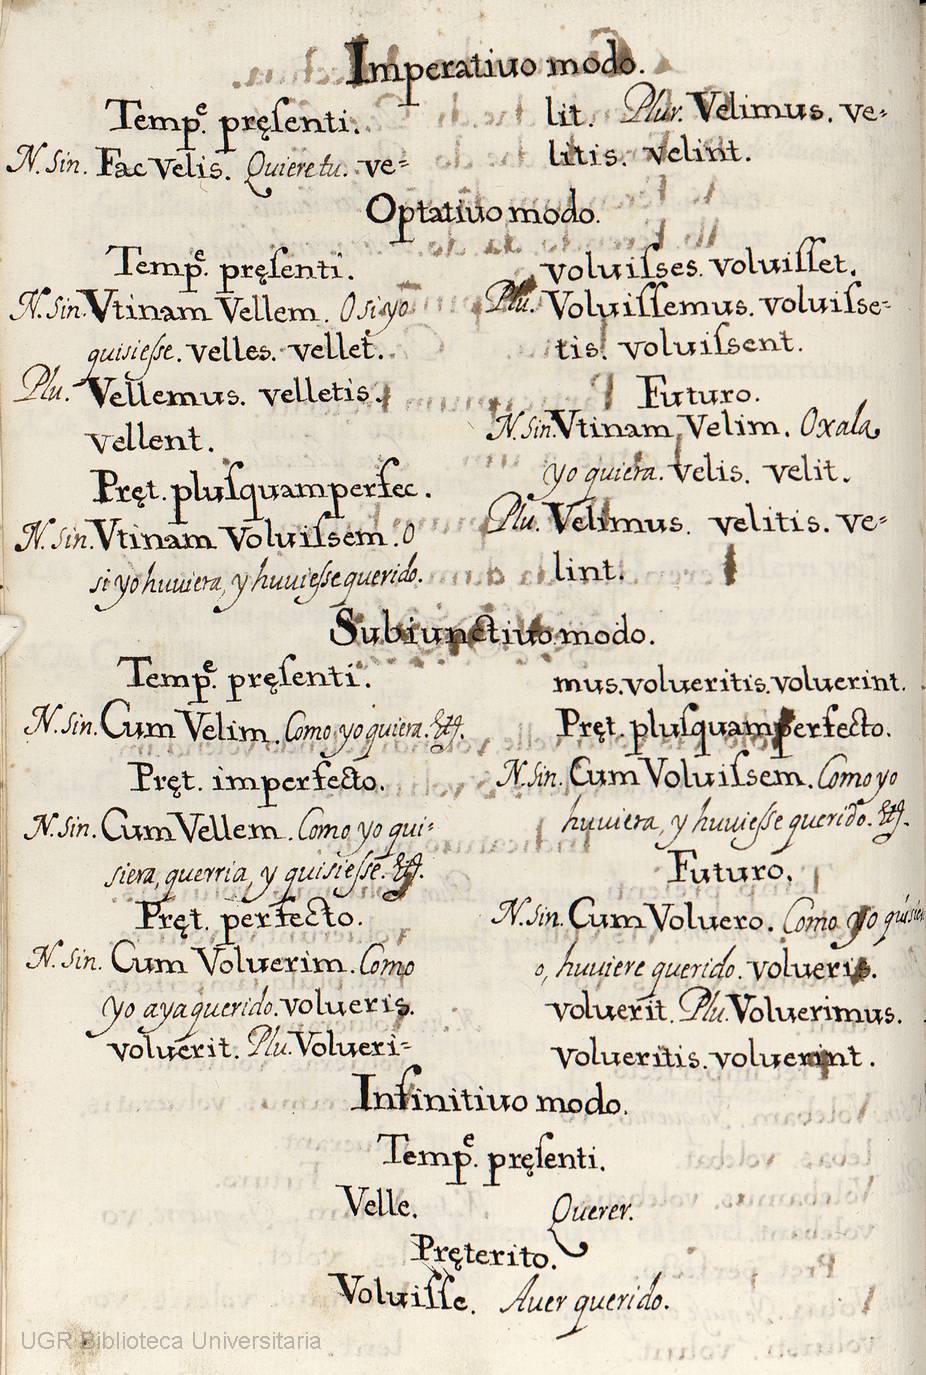 Imperatiuo modo.
Temp.e pręſenti.
N. Sin. Fac Velis. Quiere tu. ve=
lit. Plur. Velimus. ve=
litis. velint.
Optatiuo modo.
Temp.e pręſenti.
N. Sin. Vtinam Vellem. O si yo
quisieſse. velles. vellet.
Plu. Vellemus. velletis.
vellent.
Pręt. pluſquamperfec.
N. Sin. Vtinam Voluiſsem. O
si yo huuiera, y huuieſse querido.
voluiſses. voluiſſet.
Plu. Voluiſſemus. voluiſse=
tis. voluiſsent.
Futuro.
N. Sin. Vtinam Velim. Oxala
yo quiera. velis. velit.
Plu. Velimus. velitis. ve=
lint.
Subiunctiuo modo.
Temp.e pręſenti.
N. Sin. Cum Velim. Como yo quiera. &c.
Pręt. imperfecto.
N. Sin. Cum Vellem. Como yo qui=
siera, querria, y quisieſse. &c.
Pręt. perfecto.
N. Sin. Cum Voluerim. Como
yo aya querido. volueris.
voluerit. Plu. Volueri=
mus. volueritis. voluerint.
Pręt. pluſquamperfecto.
N. Sin. Cum Voluiſsem. Como yo
huuiera, y huuieſse querido. &c.
Futuro.
N. Sin. Cum Voluero. Como yo
o, huuiere querido. volueris.
voluerit. Plu. Voluerimus.
volueritis. voluerint.
Infinitiuo modo.
Temp.e pręſenti.
Velle. Querer.
Pręterito.
Voluiſſe. Auer querido.
UGR Biblioteca Universitaria